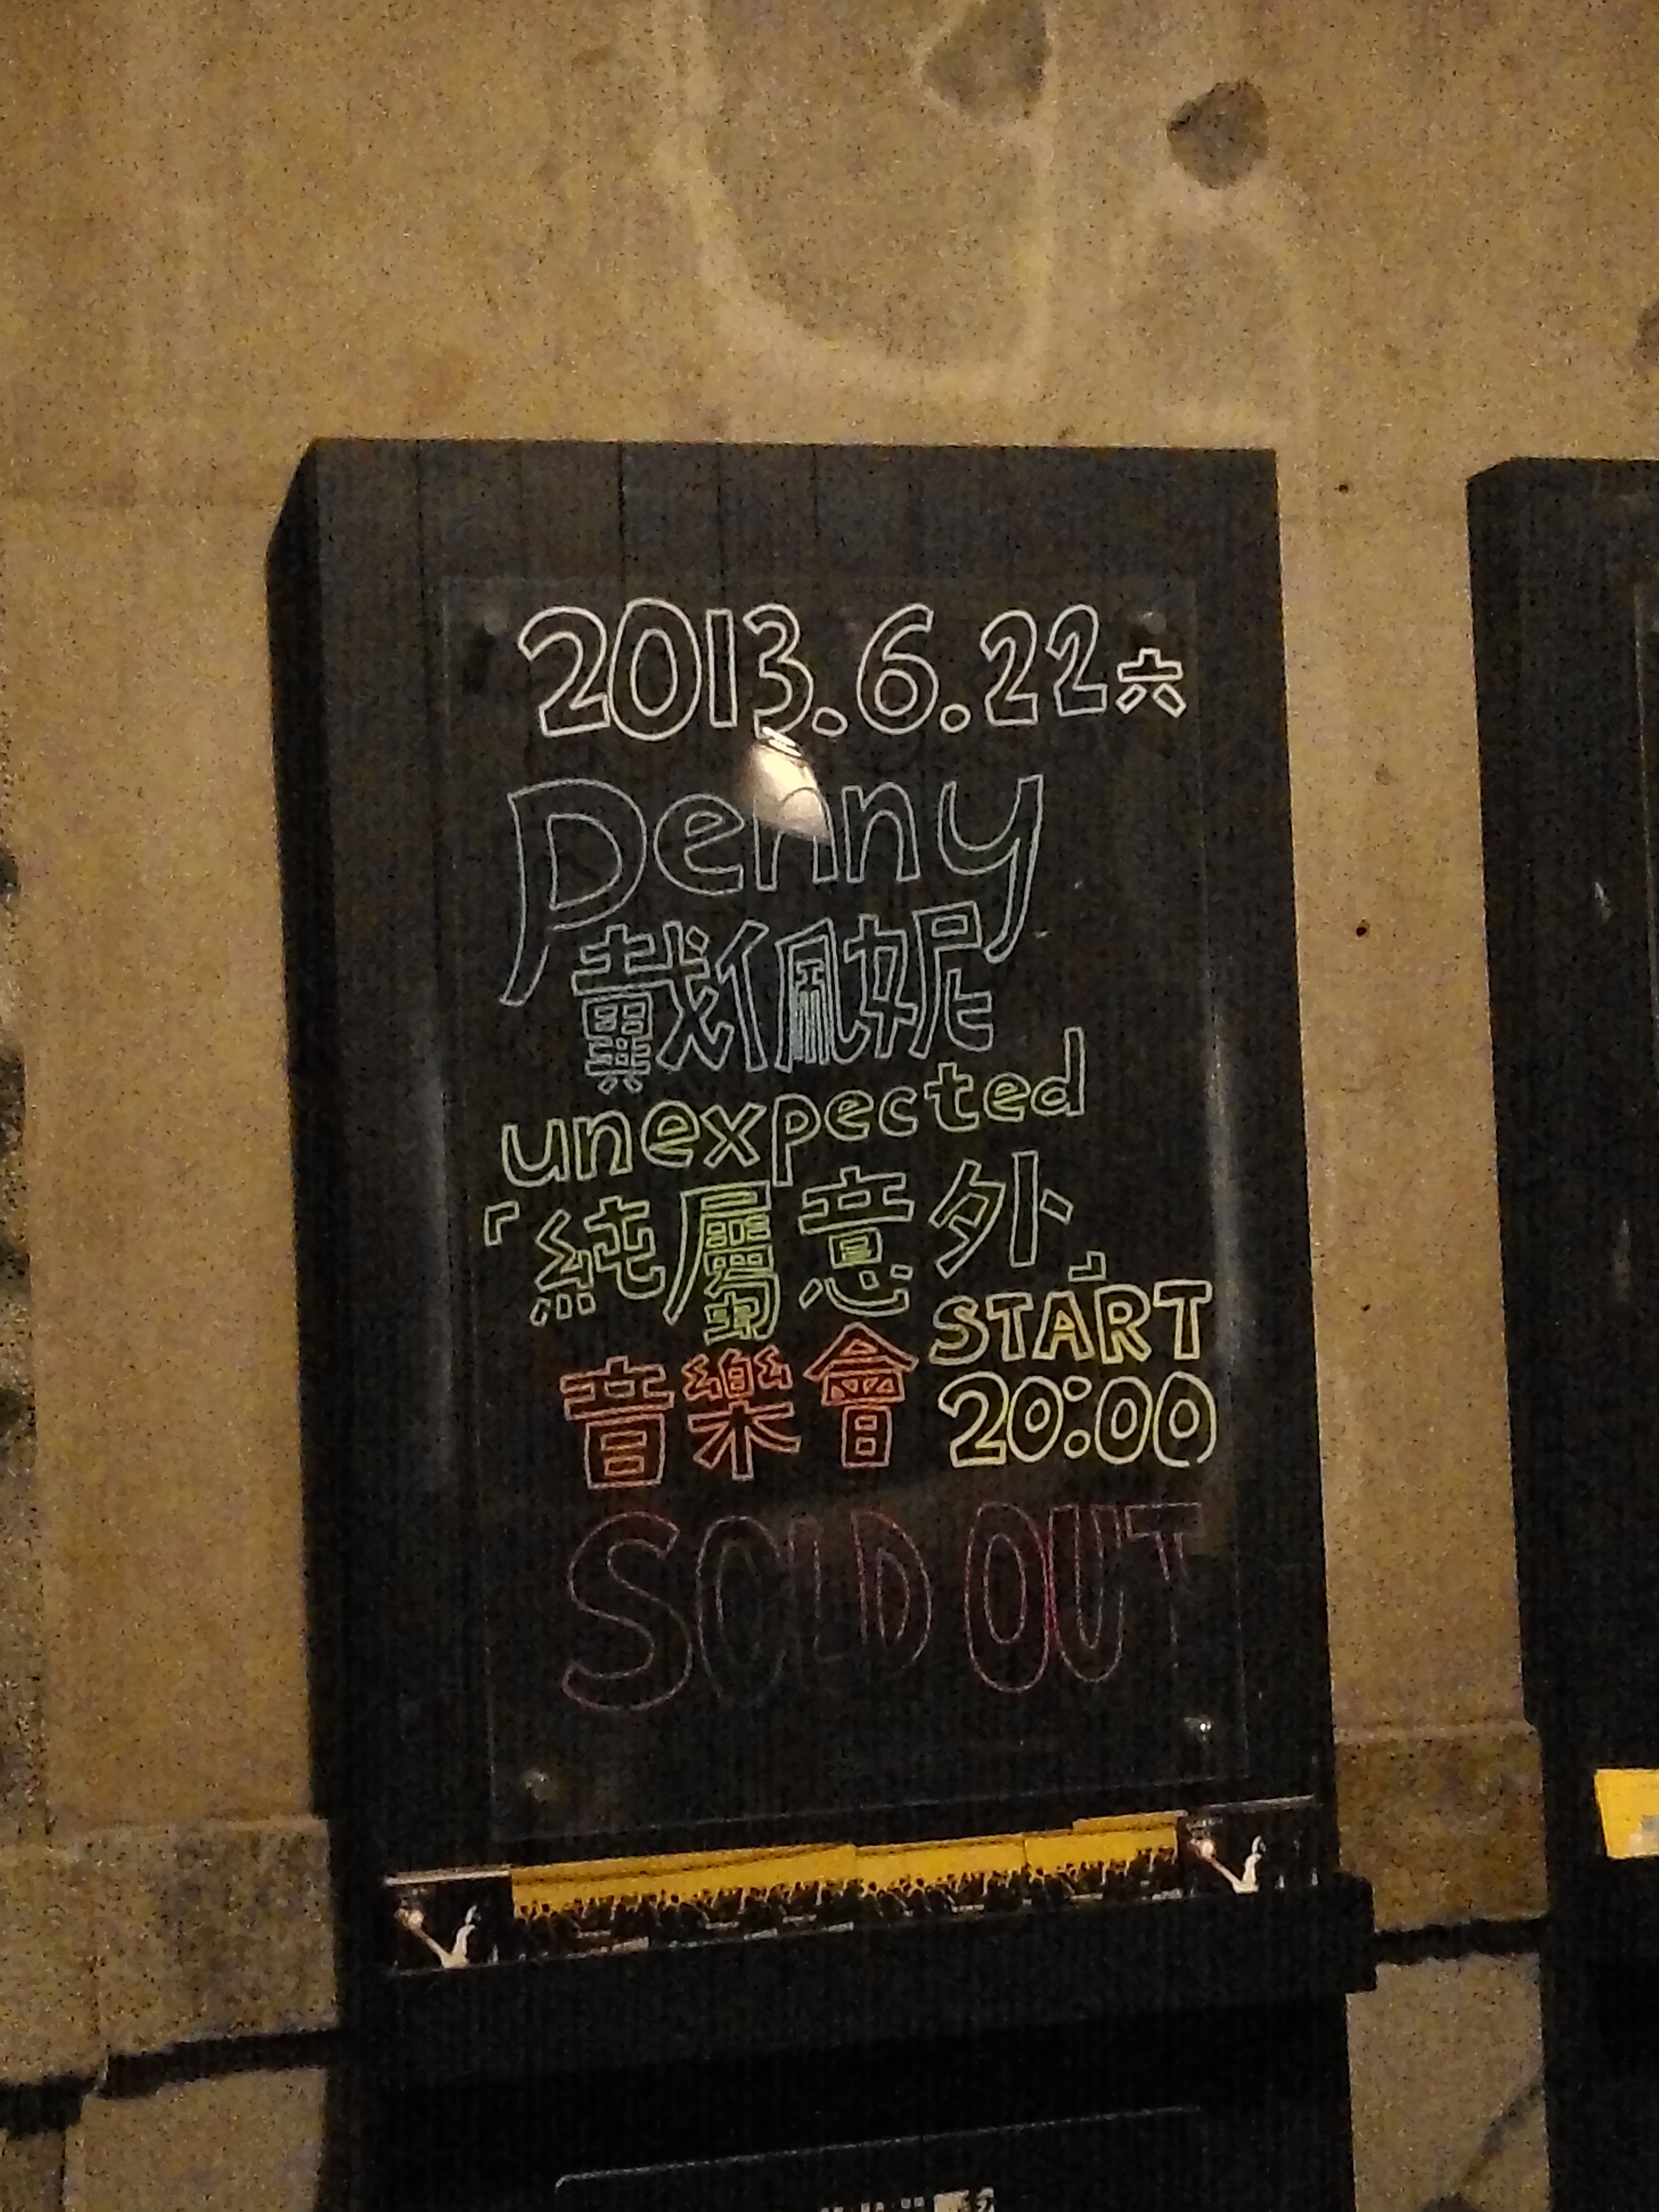 2013.6.22六
Penny
戴佩妮
unexpected
「純屬意外」
START
音樂會
20:00
SOLD OUT